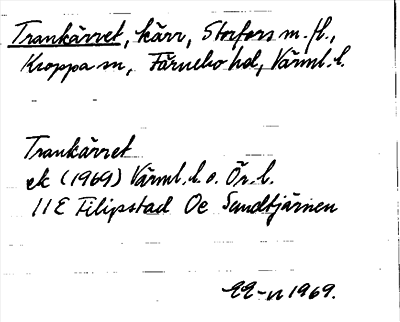 Trankärret, kärr, Storfors m.fl.,
Kroppa sn, Färnebo hd, Värml. l.
Trankärret
ek (1969) Värml. l. o. Ör. l.
11E Filipstad Oe Sundtjärnen
1969.